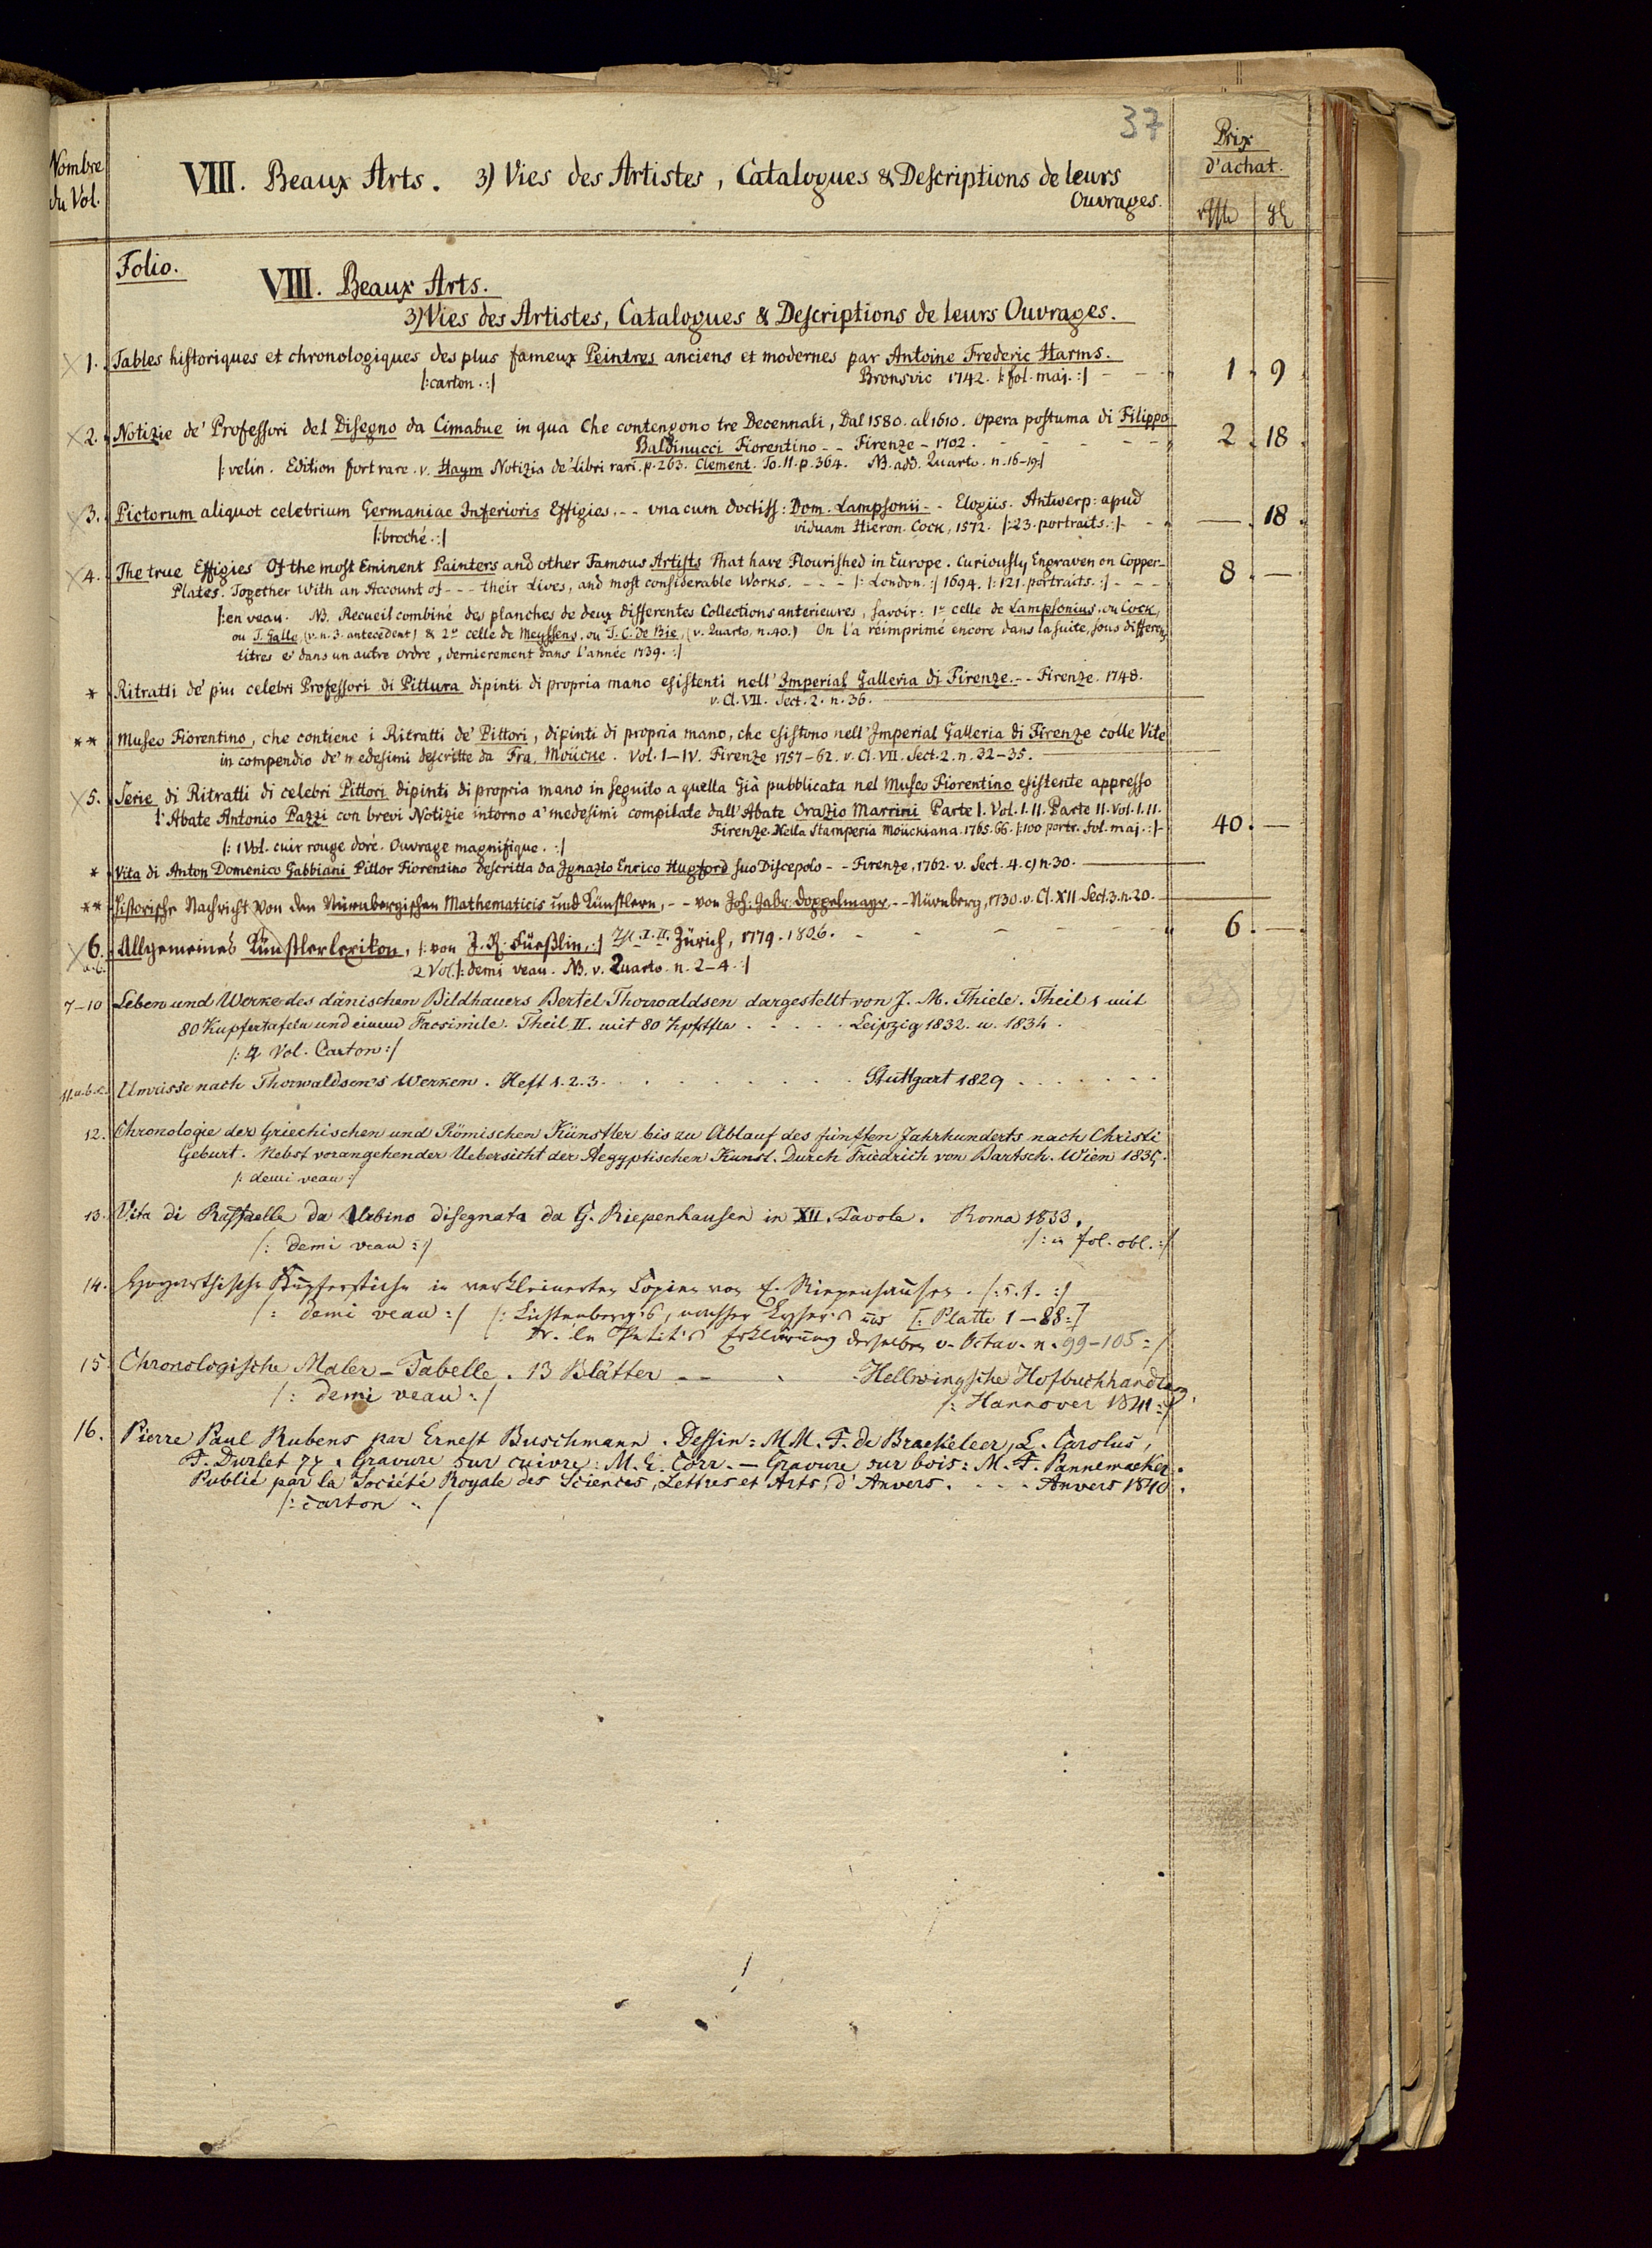 37
Nombre
du Vol.
VIII. Beaux Arts. 3) Vies des Artistes, Catalogues & Descriptions de leurs
Ouvrages.
Prix
d'achat.
Folio.
VIII. Beaux Arts.
3) Vies des Artistes, Catalogues & Descriptions de leurs Ouvrages.
1. Tables historiques et chronologiques des plus fameux Peintres anciens et modernes par Antoine Frederic Harms.
|: carton. :| Bronsvic 1742. |: fol. maj. :| - - - 1. 9.
2. Notizie de' Professori del Disegno da Cimabue in qua Che contengono tre Decennali, Dal 1580. al 1610. opera postuma di Filippo
Baldinucci Fiorentino - - Firenze - 1702. - - - - - 2. 18.
|: velin. Edition fort rare. v. Haym Notizia de' Libri rari. p. 263. Clement. To. II. p. 364. NB. add. Quarto. n. 16-19 :|
3. Pictorum aliquot celebrium Germaniae Inferioris Effigies. - - vna cum doctiss: Dom. Lampsonii - - Elogiis. Antwerp: apud
|: broché. :| viduam Hieron. Cock, 1572. |: 23. portraits. :| - - —. 18.
4. The true Effigies Of the most Eminent Painters and other Famous Artists That have Flourished in Europe. Curiously Engraven on Copper-
Plates. Together With an Account of - - - their Lives, and most considerable Works. - - - |: London. :| 1694. |: 121. portraits. :| - - - 8. —
|: en veau. NB. Recueil combiné des planches de deux differentes Collections anterieures, savoir: 1º celle de Lampsonius, ou Cock,
ou T. Galle (v. n. 3. antecedent) & 2º celle de Meyssens, ou J. C. de Bie, (v. Quarto, n. 40.) On l'a réimprimé encore dans la suite, sous differens
titres & dans un autre ordre, dernierement dans l'année 1739. :|
* Ritratti de' piu celebri Professori di Pittura dipinti di propria mano esistenti nell' Imperial Galleria di Firenze. - - Firenze. 1748.
v. Cl. VII. Sect. 2. n. 36.
** Museo Fiorentino, che contiene i Ritratti de' Pittori, dipinti di propria mano, che esistono nell' Imperial Galleria di Firenze colle Vite
in compendio de' medesimi descritte da Fra. Moücke. Vol. I-IV. Firenze 1757-62. v. Cl. VII. Sect. 2. n. 32-35.
5. Serie di Ritratti di celebri Pittori dipinti di propria mano in seguito a quella Già pubblicata nel Museo Fiorentino esistente appresso
l'Abate Antonio Pazzi con brevi Notizie intorno a' medesimi compilate dall' Abate Orazio Marrini Parte I. Vol. I. II. Parte II. Vol. I. II.
Firenze. Nella Stamperia Moückiana. 1765. 66. |: 100 portr. fol. maj. :| - 40. —
|: 1 Vol. cuir rouge doré. Ouvrage magnifique. :|
* Vita di Anton Domenico Gabbiani Pittor Fiorentino descritta da Ignazio Enrico Hugford suo Discepolo - - Firenze, 1762. v. Sect. 4. c) n. 30.
** Historische Nachricht Von den Nürnbergischen Mathematicis und Künstlern, - - von Joh: Gabr: Doppelmayr - - Nürnberg, 1730. v. Cl. XII Sect. 3. n. 20.
6. Allgemeines Künstlerlexikon, |: von J. R. Füeßlin, :| I. II. Zürich, 1779. 1806. - - - - 6. —
a. b. 2 Vol. |: demi veau. NB. v. Quarto. n. 2-4. :|
7-10 Leben und Werke des dänischen Bildhauers Bertel Thorwaldsen dargestellt von J. M. Thiele. Theil 1 mit
80 Kupfertafeln und einem Facsimile. Theil II. mit 80 Kpftfln . . . . . Leipzig 1832. u. 1834.
|: 4 Vol. Carton :|
11. a. b. c. Umrisse nach Thorwaldsen's Werken. Heft 1. 2. 3. . . . . . . . . Stuttgart 1829 . . . . . . .
12. Chronologie der Griechischen und Römischen Künstler bis zu Ablauf des fünften Jahrhunderts nach Christi
Geburt. Nebst vorangehender Uebersicht der Aegyptischen Kunst. Durch Friedrich von Bartsch. Wien 1835.
|: demi veau :|
13. Vita di Raffaelle da Urbino disegnata da G. Riepenhausen in XII. Tavole. Roma 1833.
|: demi veau :| |: in fol. obl. :|
14. Hogarthische Kupferstiche in verkleinerten Copien von E. Riepenhausen. |: s. t. :|
|: demi veau :| |: Lichtenberg's, [: Platte 1-88 :]
Dr. le Petit's Erklärung derselben v. Octav. n. 99-105 :|
15. Chronologische Maler-Tabelle. 13 Blätter - - . Hellwingsche Hofbuchhandlg.
|: demi veau :| |: Hannover 1841 :|
16. Pierre Paul Rubens par Ernest Buschmann. Dessin: MM. F. de Braekeleer, L. Carolus,
F. Durlet Gravure sur cuivre: M. E. Corr. — Gravure sur bois: M. F. Pannemacker.
Publié par la Société Royale des Sciences, Lettres et Arts, d'Anvers. . . . Anvers 1840.
|: carton :|